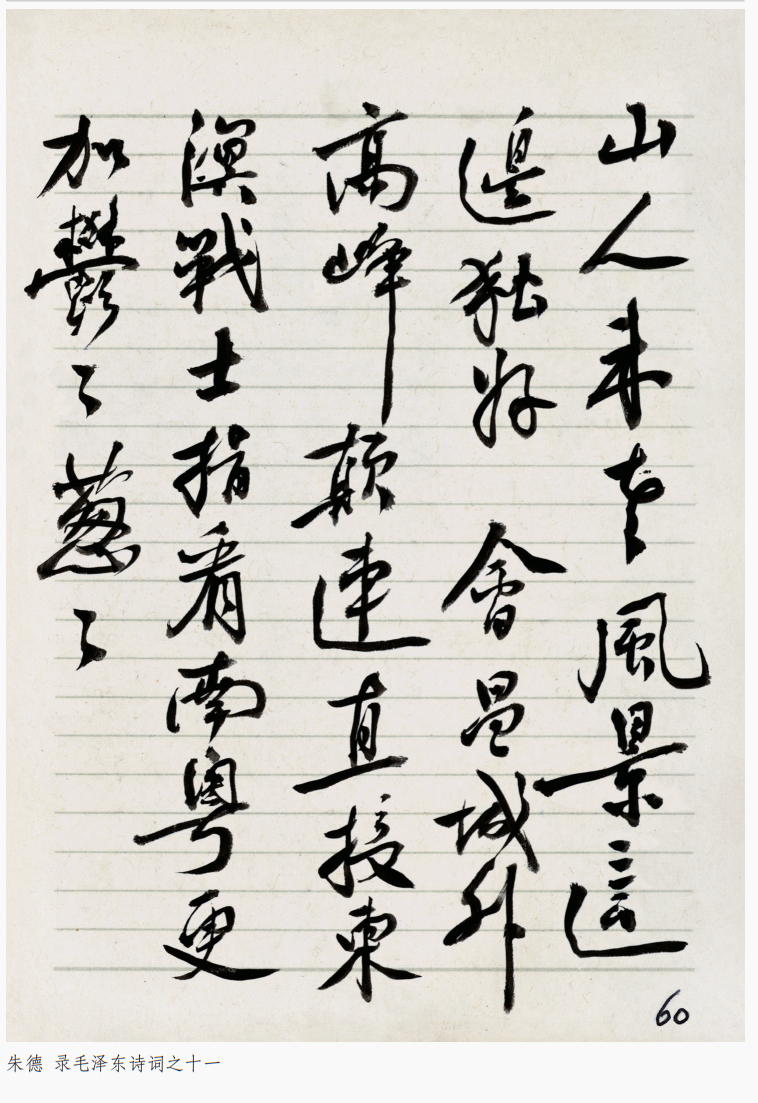 山人未老風景這
邊独好 會昌城外
高峰顛連直接東
溟戰士指看南粤更
加鬱々葱々
60
朱德 录毛泽东诗词之十一